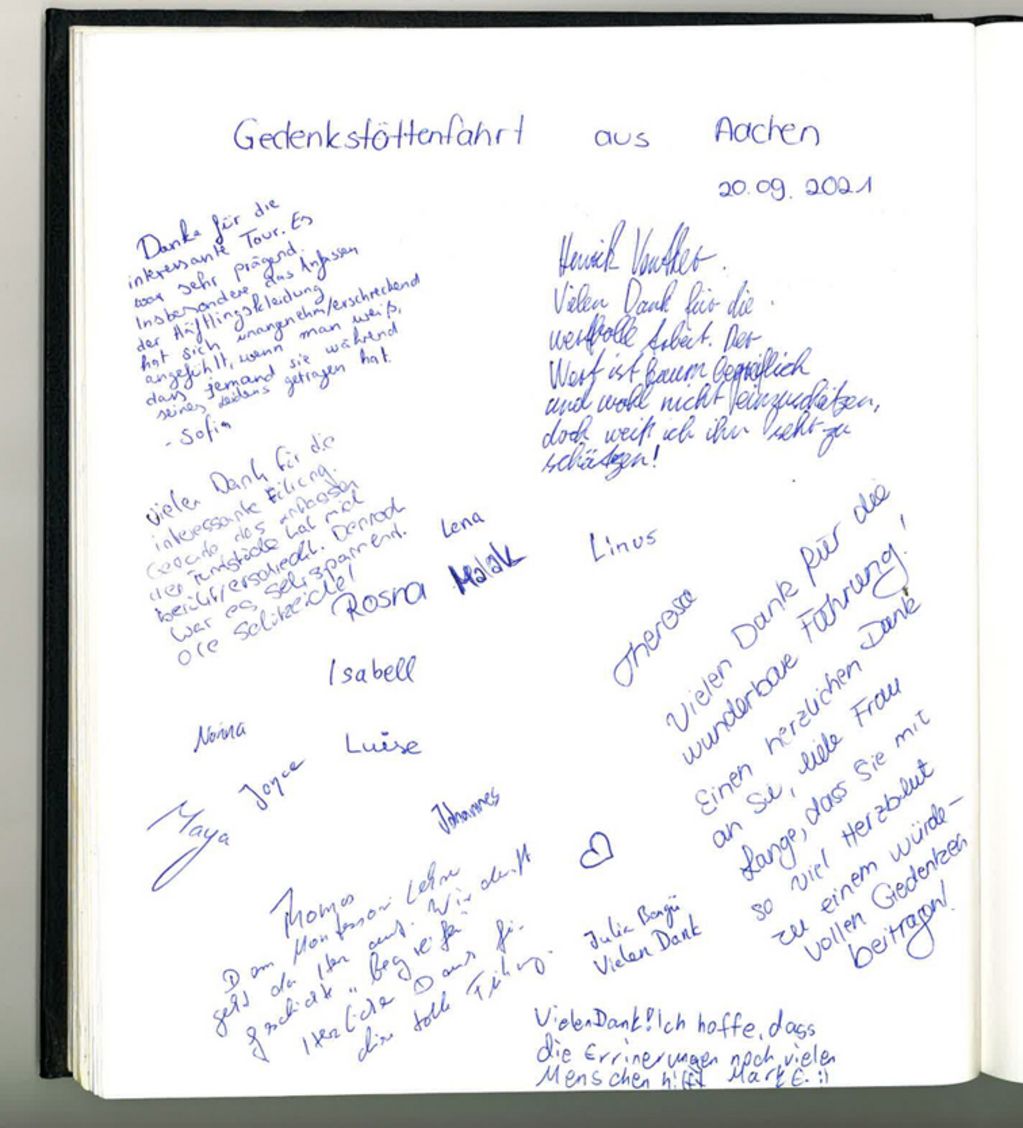 Gedenkstättenfahrt aus Aachen
20.09.2021
Danke für die
interessante Tour. Es
war sehr prägend.
Insbesondere das Anfassen
der Häftlingskleidung
hat sich unangenehm/erschreckend
angefühlt, wenn man weiß,
dass jemand sie während
seines Leidens getragen hat.
- Sofia
Henrick
Vielen Dank für die
wertvolle Arbeit. Der
Wert ist kaum begreiflich
und wohl nicht einzuschätzen,
doch weiß ich ihn sehr zu
schätzen!
Vielen Dank für die
interessante Führung.
Gerade das anfassen
der Fundstücke hat mich
berührt/erschreckt. Dennoch
war es sehr spannend.
Lena
Rosna Malak
Linus
Isabell
Theresa
Vielen Dank für die
wunderbare Führung!
Einen herzlichen Dank
an Sie, liebe Frau
Lange, dass Sie mit
so viel Herzblut
zu einem würde-
vollen Gedenken
beitragen!
Norina
Luise
Joyce
Maya
Johannes
Thomas
Dem Montessori Lehrer
geht da Herz auf. Wir
Geschichte "Begreifen
Herzlichen Dank für
diese tolle Führung.
Julia
Vielen Dank
Vielen Dank! Ich hoffe, dass
die Errinerungen noch vielen
Menschen hilft Mark E. :)